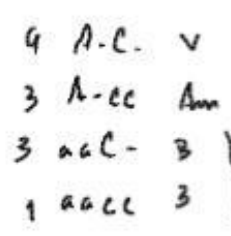 9 A-C- V
3 A-cc Am
3 aaC- B
1 aacc 3